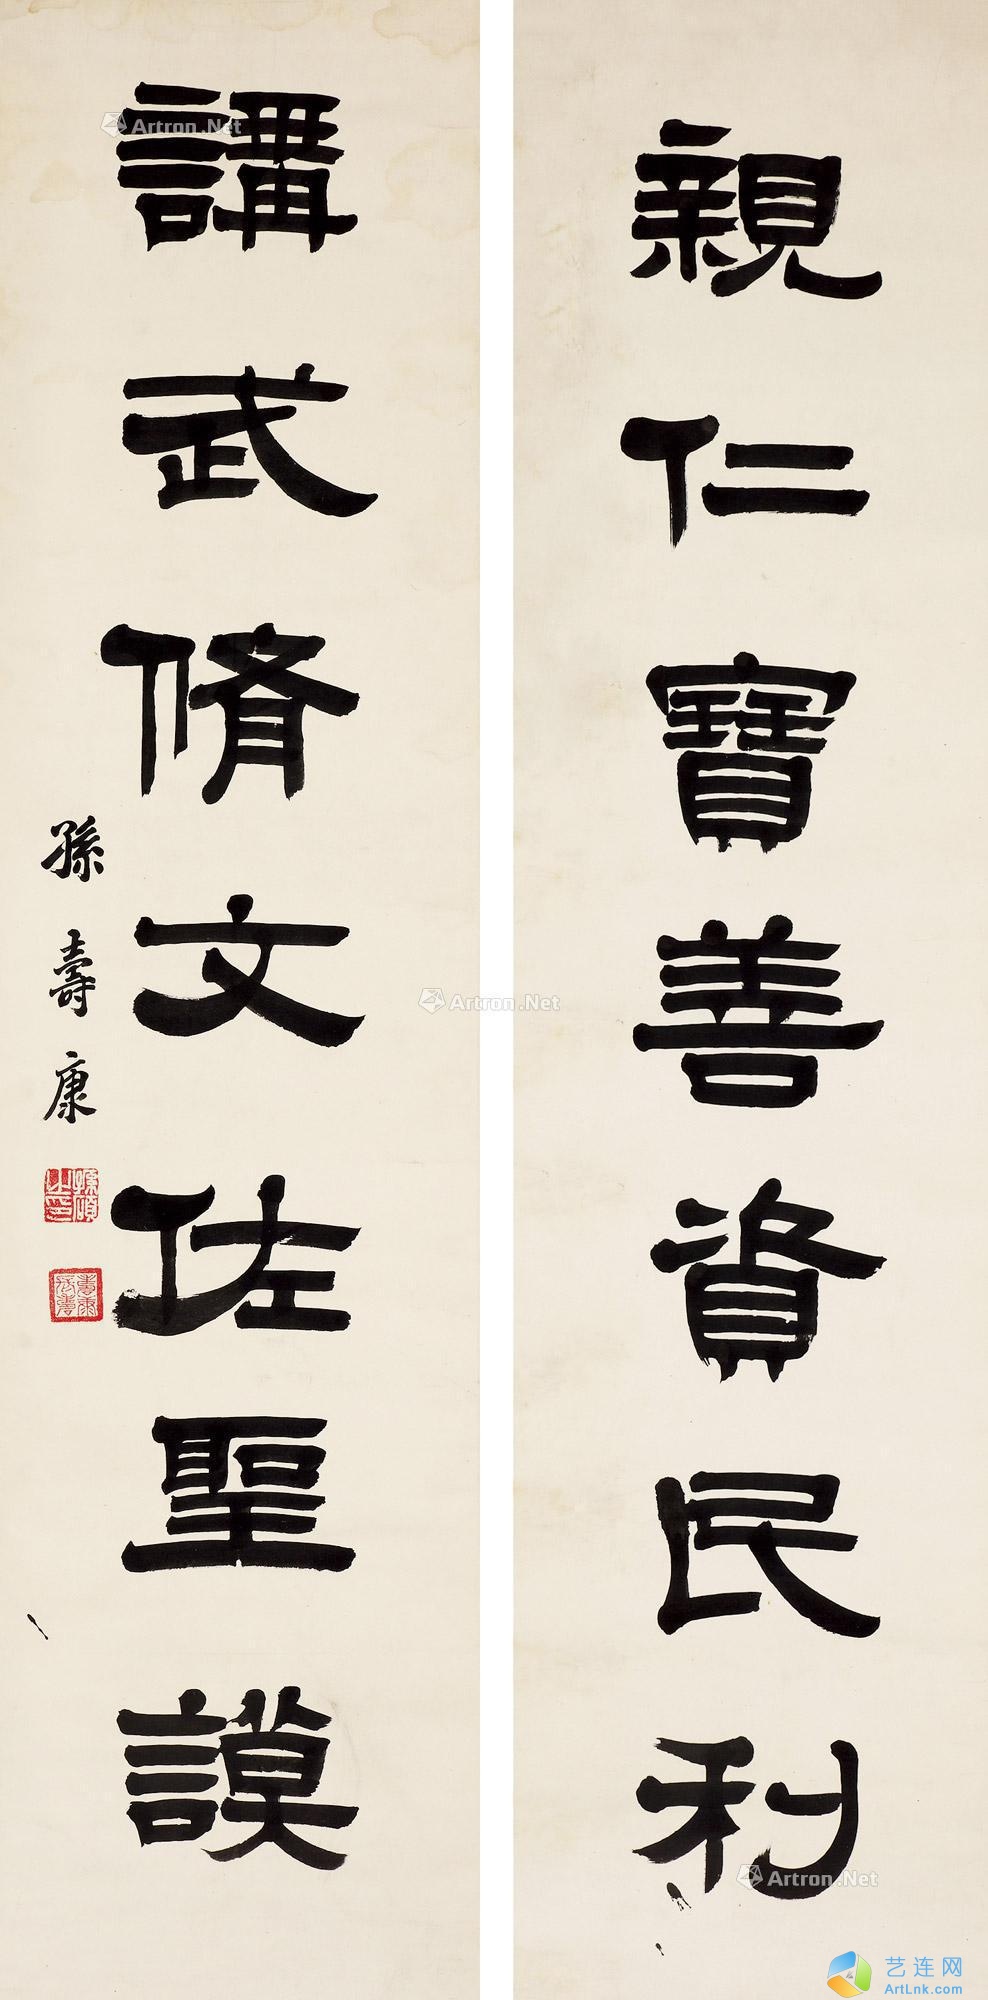 親仁寶善資民利
講武脩文佐聖謨
孫壽康
Artron.Net
Artron.Net
Artron.Net
艺连网
ArtLnk.com